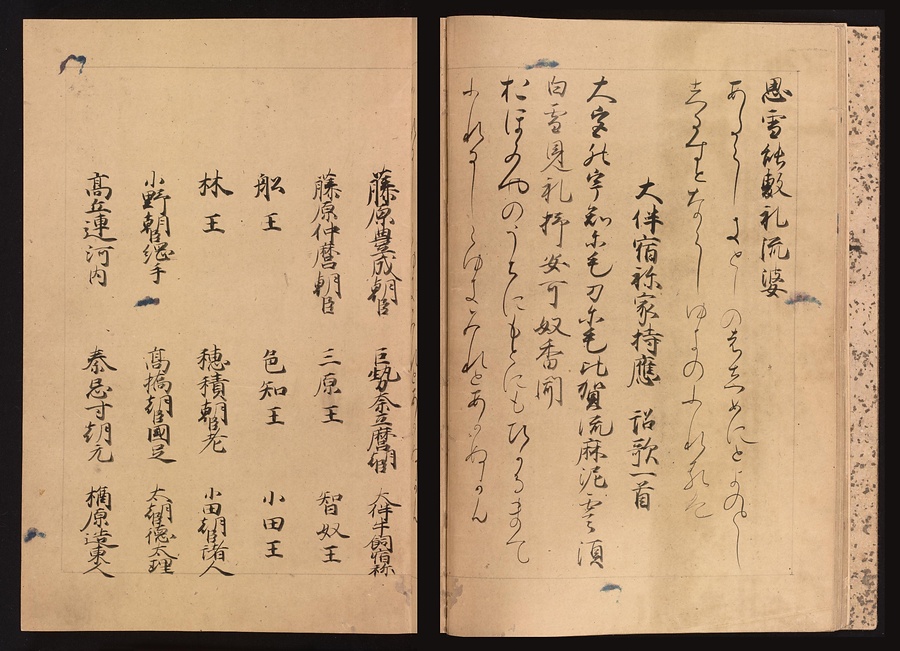 思雪能敷礼流婆
あたらしきとしのはしめにとよのとし
しるすとならしゆきのふれるは
大伴宿祢家持應 詔歌一首
大宮能宇知尓毛刀尓毛比賀流麻泥零須
白雪見礼杼安可奴香聞
おほみやのうちにもとにもひかるまて
ふれるしらゆきみれとあかぬかも
藤原豊成朝臣 巨勢奈弖麿朝臣 大伴牛飼宿祢
藤原仲麿朝臣 三原王 智奴王
舩王 邑知王 小田王
林王 穂積朝臣老 小田朝臣諸人
小野朝臣綱手 髙橋朝臣國足 太朝臣徳太理
髙丘連河内 秦忌寸朝元 楢原造東人